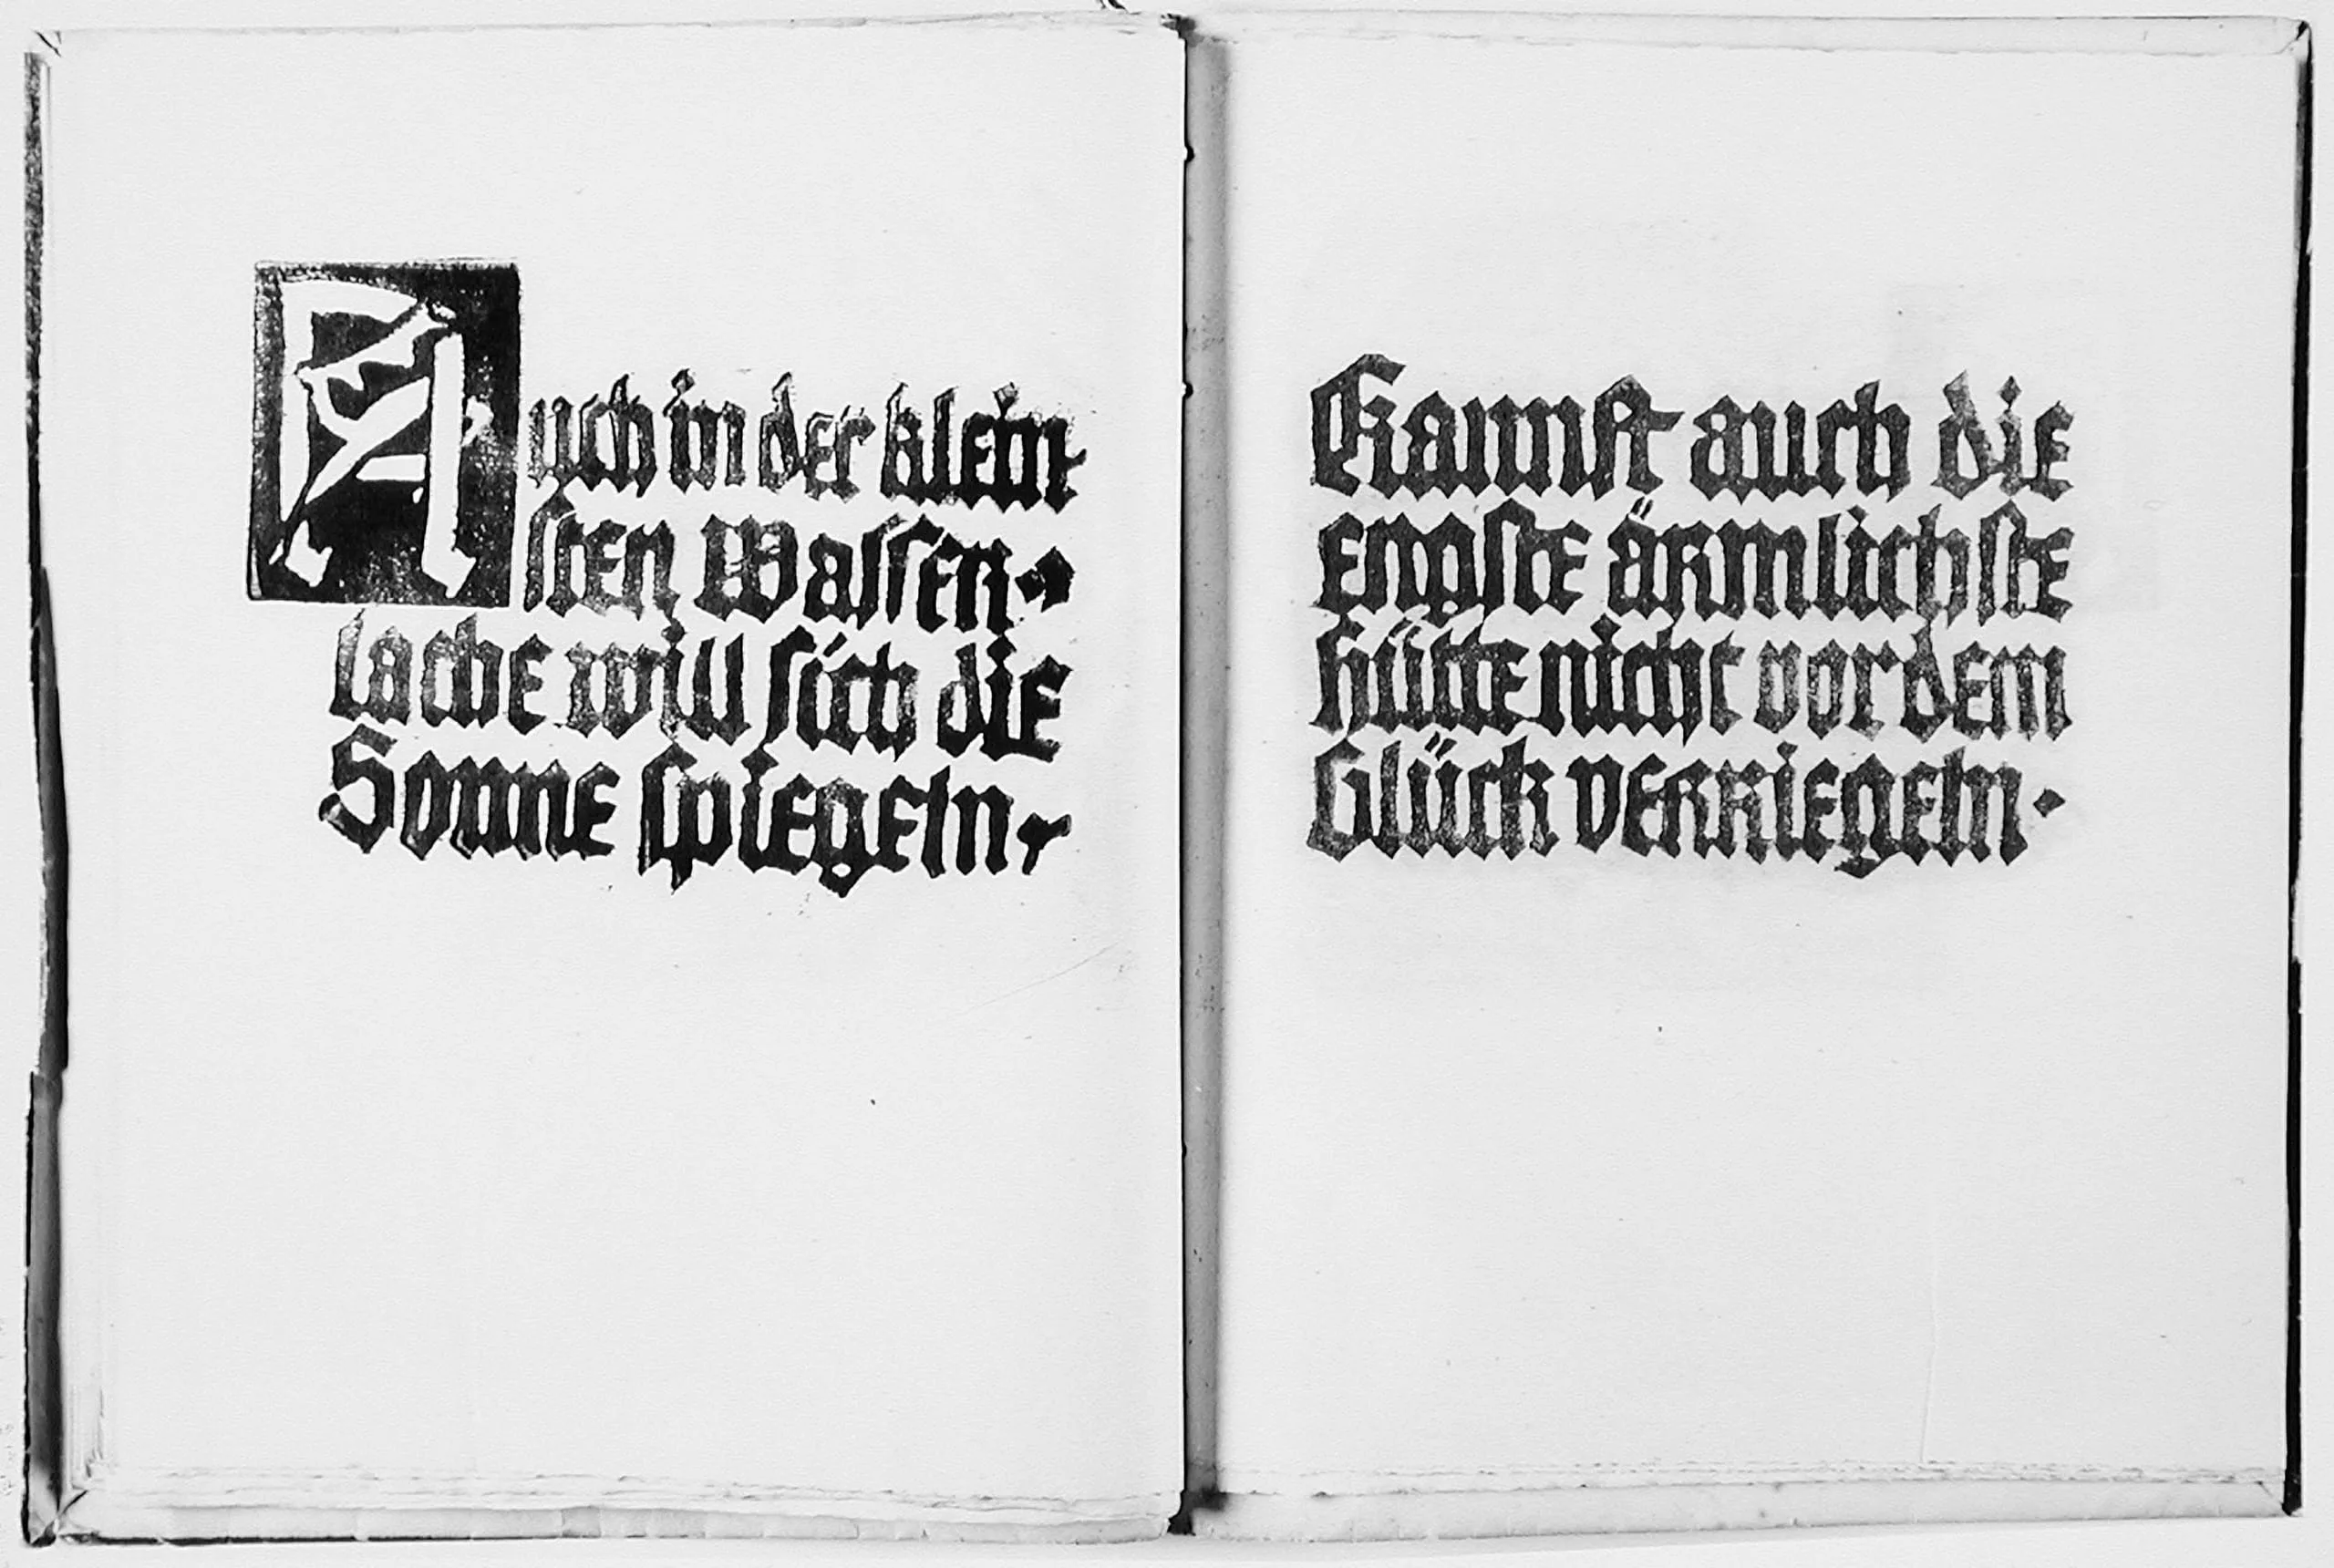 Auch in der klein-
sten Wasser-
lache will sich die
Sonne spiegeln.
Kannst auch die
engste ärmlichste
Hütte nicht vor dem
Glück verriegeln.